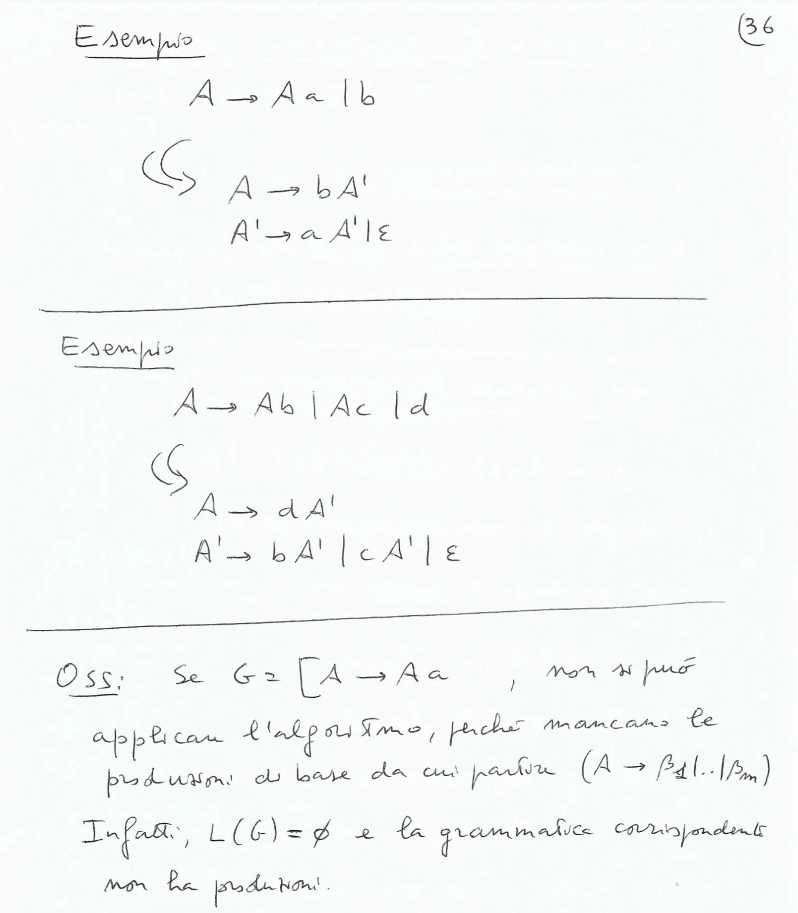 (36
Esempio
A → A a | b
A → b A'
A' → a A' | ε
Esempio
A → Ab | Ac | d
A → d A'
A' → b A' | c A' | ε
Oss: Se G = [A → A a , non si può
applicare l'algoritmo, perché mancano le
produzioni di base da cui partire (A → β1|..|βm)
Infatti, L(G) = ∅ e la grammatica corrispondente
non ha produzioni.